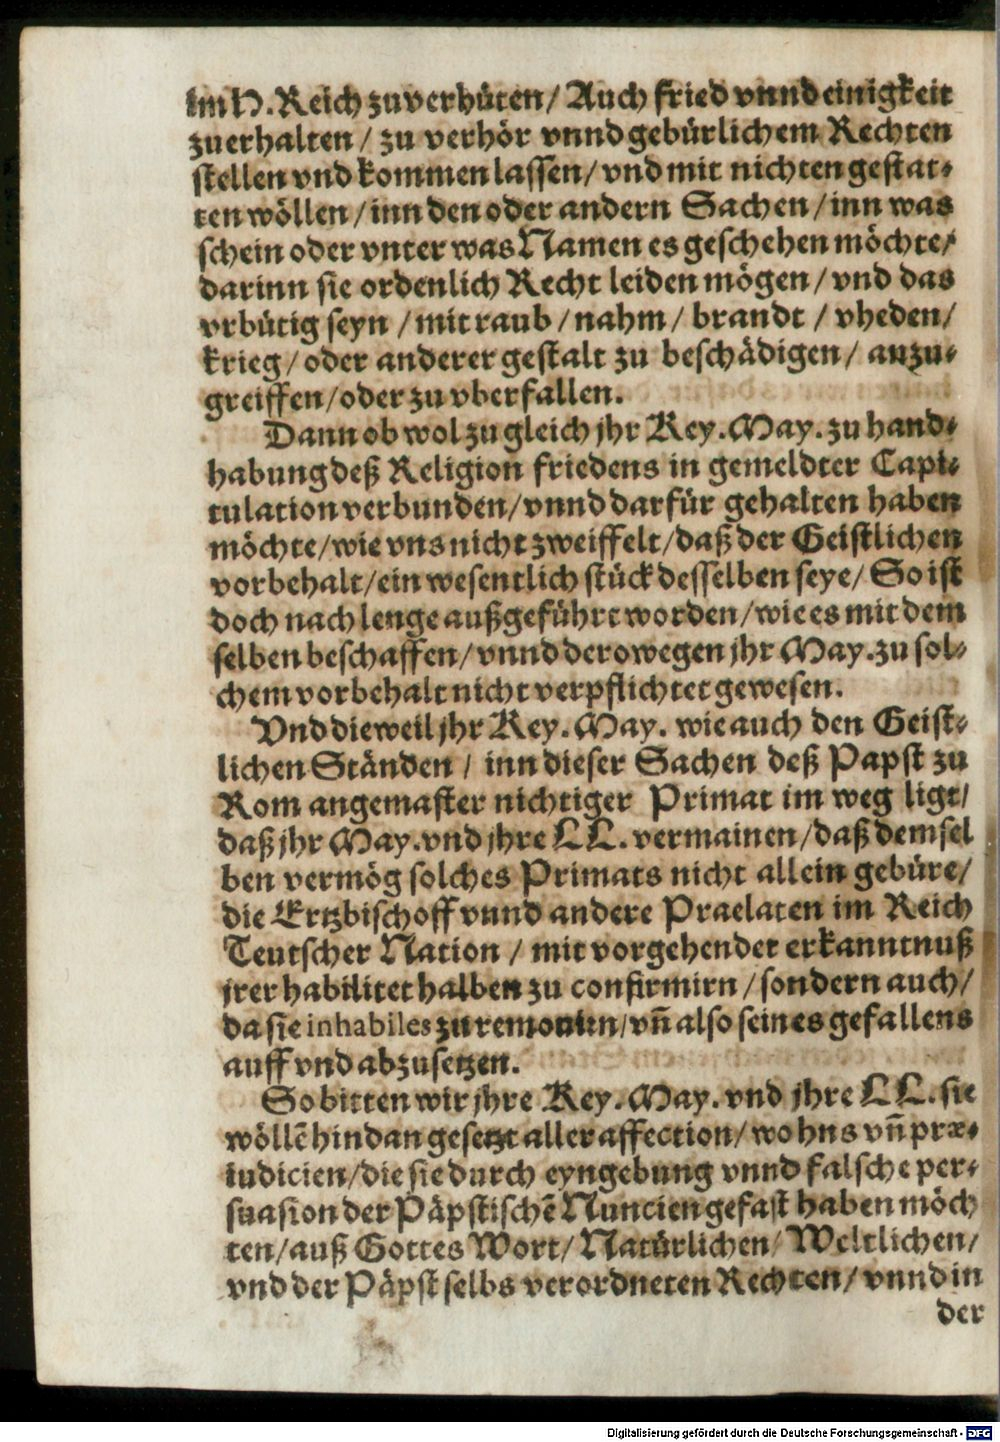 im H. Reich zuverhüten / Auch fried vnnd einigkeit
zuerhalten / zu verhör vnnd gebürlichem Rechten
stellen vnd kommen lassen / vnd mit nichten gestat-
ten wöllen / inn den oder andern Sachen / inn was
schein oder vnter was Namen es geschehen möchte /
darinn sie ordenlich Recht leiden mögen / vnd das
vrbütig seyn / mit raub / nahm / brandt / vheden /
krieg / oder anderer gestalt zu beschädigen / anzu-
greiffen / oder zu vberfallen.
Dann ob wol zu gleich jhr Key. May. zu hand-
habung deß Religion friedens in gemeldter Capi-
tulation verbunden / vnnd darfür gehalten haben
möchte / wie vns nicht zweiffelt / daß der Geistlichen
vorbehalt / ein wesentlich stück desselben seye / So ist
doch nach lenge außgeführt worden / wie es mit dem
selben beschaffen / vnnd derowegen jhr May. zu sol-
chem vorbehalt nicht verpflichtet gewesen.
Vnd dieweil jhr Key. May. wie auch den Geist-
lichen Ständen / inn dieser Sachen deß Papst zu
Rom angemaster nichtiger Primat im weg ligt /
daß jhr May. vnd jhre LL. vermainen / daß demsel
ben vermög solches Primats nicht allein gebüre /
die Ertzbischoff vnnd andere Praelaten im Reich
Teutscher Nation / mit vorgehender erkanntnuß
jrer habilitet halben zu confirmirn / sondern auch /
da sie inhabiles zu remouirn / vñ also seines gefallens
auff vnd abzusetzen.
So bitten wir jhre Key. May. vnd jhre LL. sie
wöllē hindan gesetzt aller affection / wohns vñ præ-
iudicien / die sie durch eyngebung vnnd falsche per-
suasion der Päpstischē Nuncien gefast haben möch
ten / auß Gottes Wort / Natürlichen / Weltlichen /
vnd der Päpst selbs verordneten Rechten / vnnd in
der
Digitalisierung gefördert durch die Deutsche Forschungsgemeinschaft - DFG